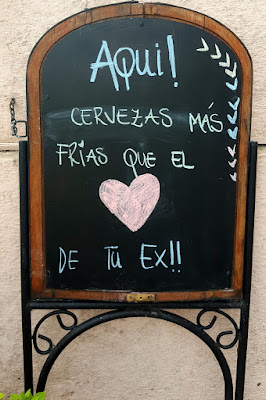 Aqui!
CERVEZAS MÁS
FRÍAS QUE EL
DE TU EX!!